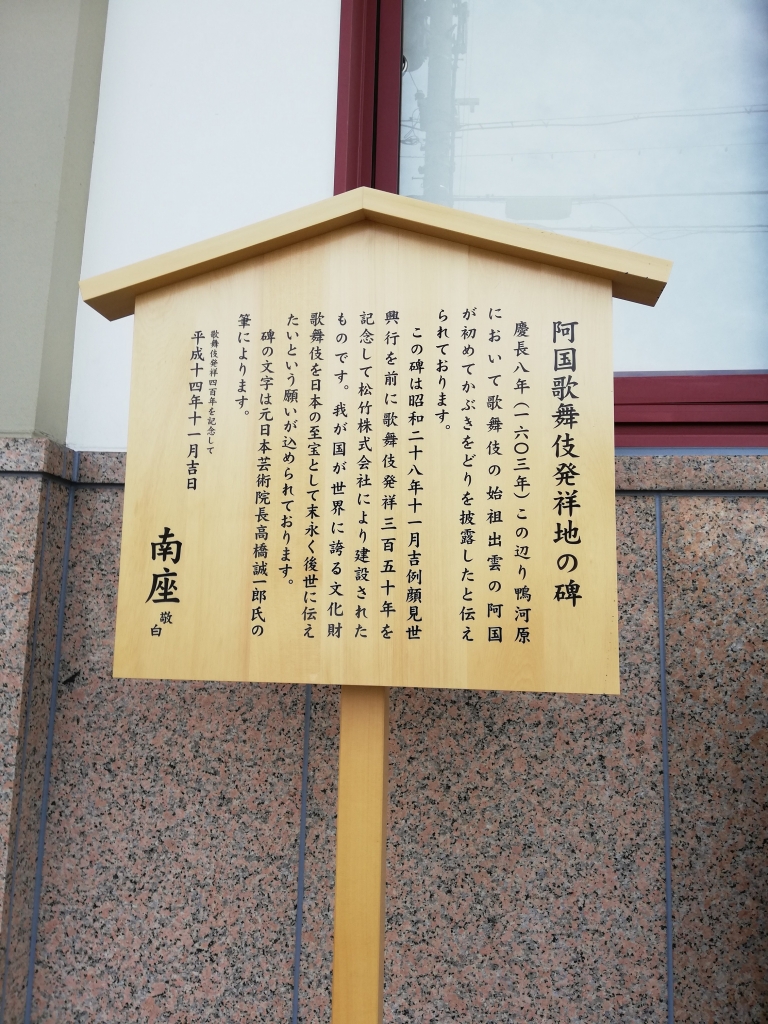 阿国歌舞伎発祥地の碑
慶長八年（一六〇三年）この辺り鴨河原
において歌舞伎の始祖出雲の阿国
が初めてかぶきをどりを披露したと伝え
られております。
この碑は昭和二十八年十一月吉例顔見世
興行を前に歌舞伎発祥三百五十年を
記念して松竹株式会社により建設された
ものです。我が国が世界に誇る文化財
歌舞伎を日本の至宝として末永く後世に伝え
たいという願いが込められております。
碑の文字は元日本芸術院長高橋誠一郎氏の
筆によります。
歌舞伎発祥四百年を記念して
平成十四年十一月吉日
南座 敬白